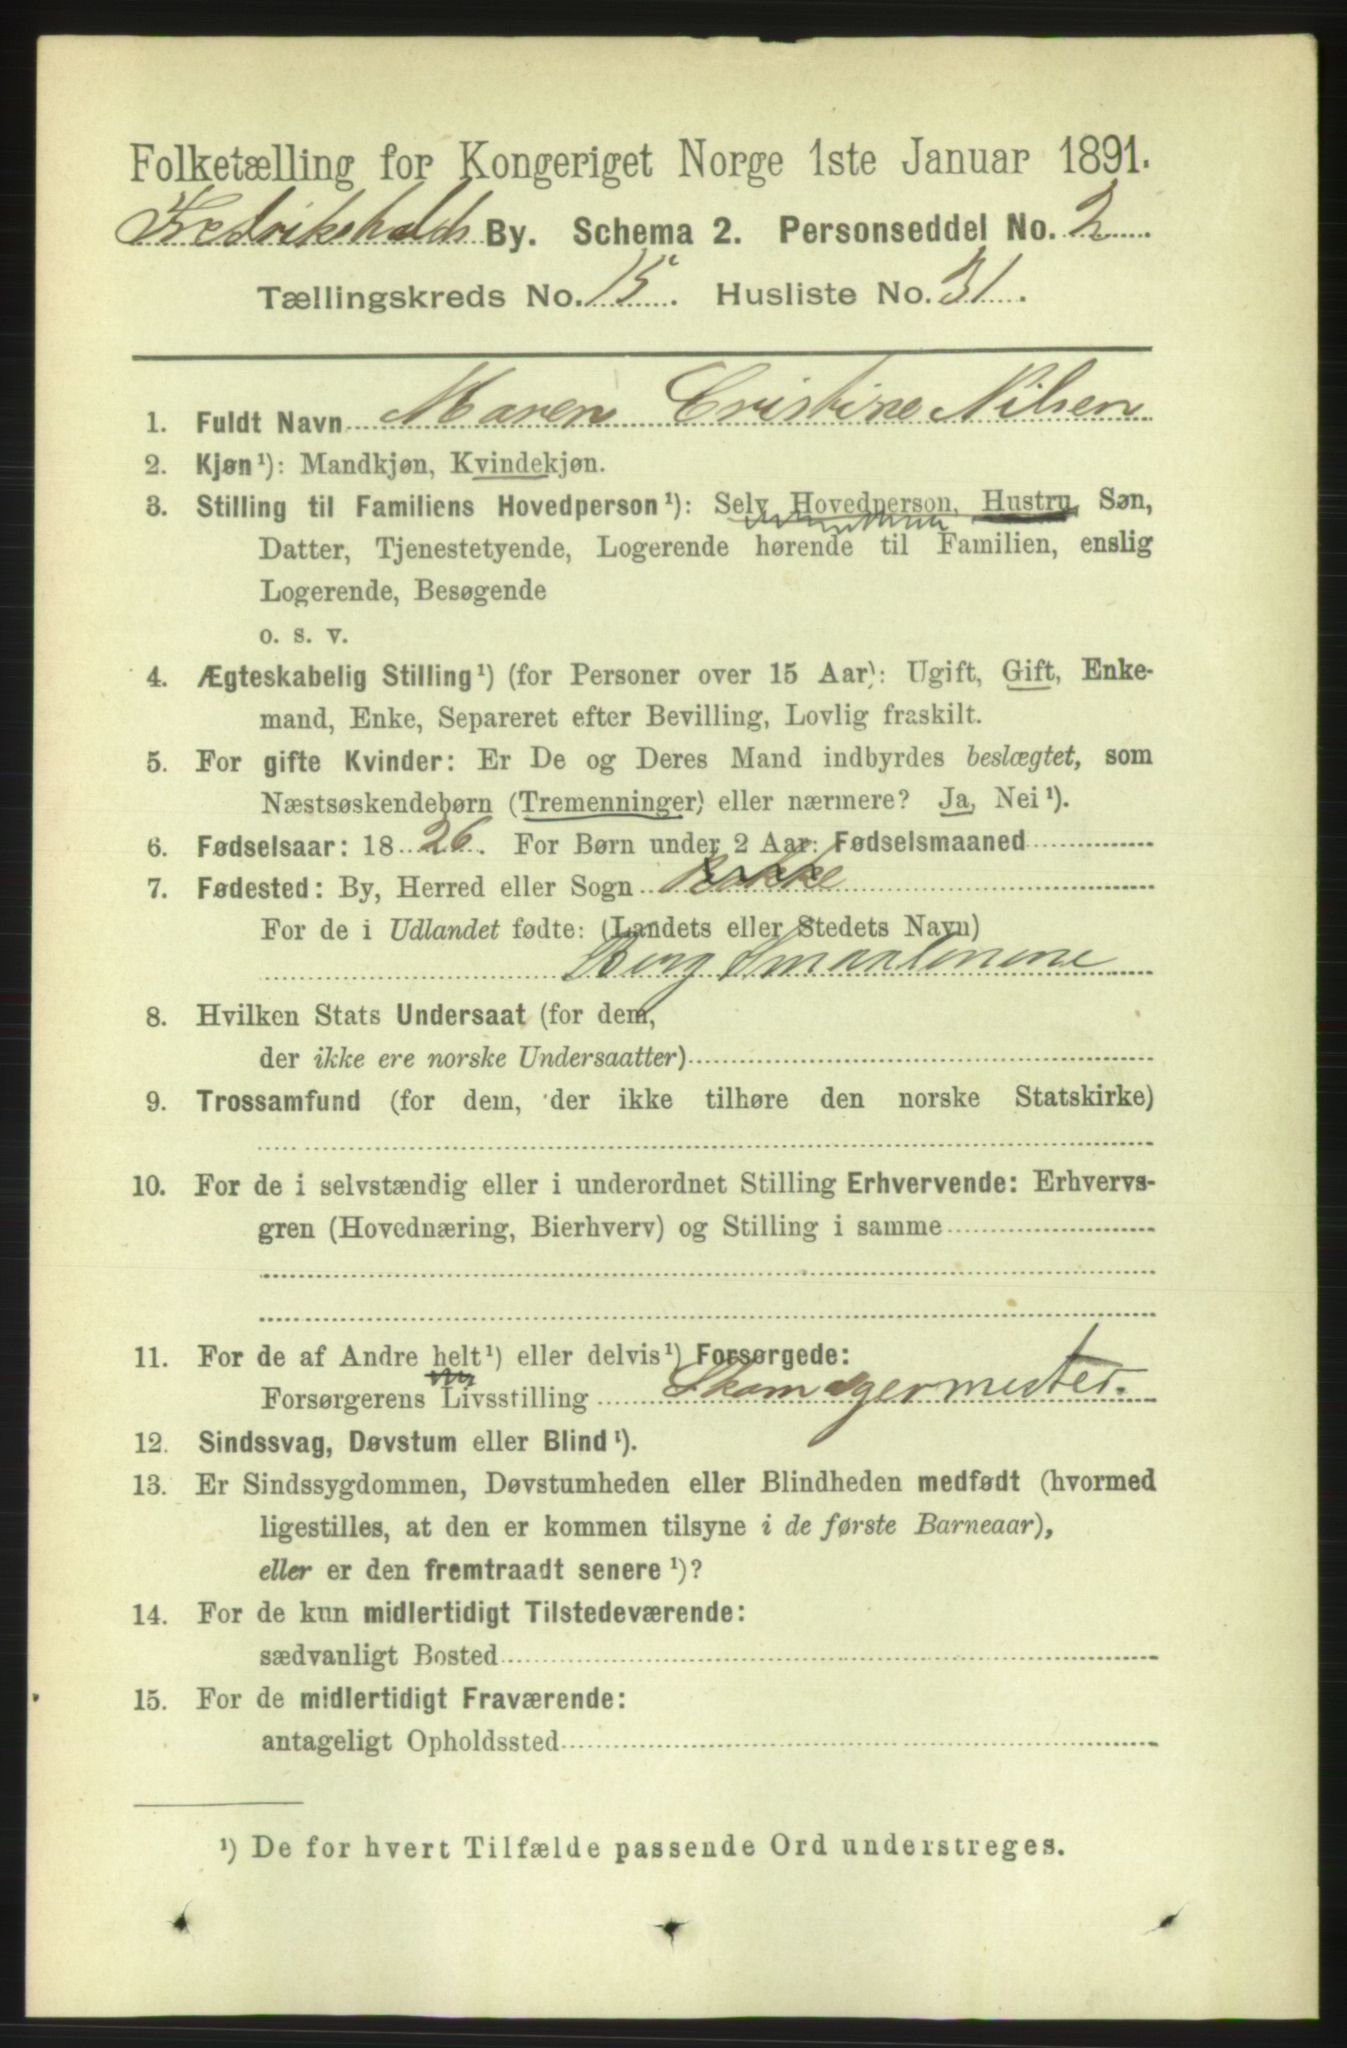 Folketælling for Kongeriget Norge 1ste Januar 1891.
Fredrikshalds By. Schema 2. Personseddel No. 2
Tællingskreds No. 15. Husliste No. 31.
1. Fuldt Navn Maren Cristine Nilsen
2. Kjøn¹): Mandkjøn, Kvindekjøn.
3. Stilling til Familiens Hovedperson¹): Selv Hovedperson, Hustru, Søn,
Datter, Tjenestetyende, Logerende hørende til Familien, enslig
Logerende, Besøgende
o. s. v.
4. Ægteskabelig Stilling¹) (for Personer over 15 Aar): Ugift, Gift, Enke-
mand, Enke, Separeret efter Bevilling, Lovlig fraskilt.
5. For gifte Kvinder: Er De og Deres Mand indbyrdes beslægtet, som
Næstsøskendebørn (Tremenninger) eller nærmere? Ja, Nei¹).
6. Fødselsaar: 1826. For Børn under 2 Aar: Fødselsmaaned
7. Fødested: By, Herred eller Sogn Rokke
For de i Udlandet fødte: (Landets eller Stedets Navn)
Berg Smaalenene
8. Hvilken Stats Undersaat (for dem,
der ikke ere norske Undersaatter)
9. Trossamfund (for dem, der ikke tilhøre den norske Statskirke)
10. For de i selvstændig eller i underordnet Stilling Erhvervende: Erhvervs-
gren (Hovednæring, Bierhverv) og Stilling i samme
11. For de af Andre helt¹) eller delvis¹) Forsørgede:
Forsørgerens Livsstilling Skomagermester.
12. Sindssvag, Døvstum eller Blind¹).
13. Er Sindssygdommen, Døvstumheden eller Blindheden medfødt (hvormed
ligestilles, at den er kommen tilsyne i de første Barneaar),
eller er den fremtraadt senere¹)?
14. For de kun midlertidigt Tilstedeværende:
sædvanligt Bosted
15. For de midlertidigt Fraværende:
antageligt Opholdssted
¹) De for hvert Tilfælde passende Ord understreges.